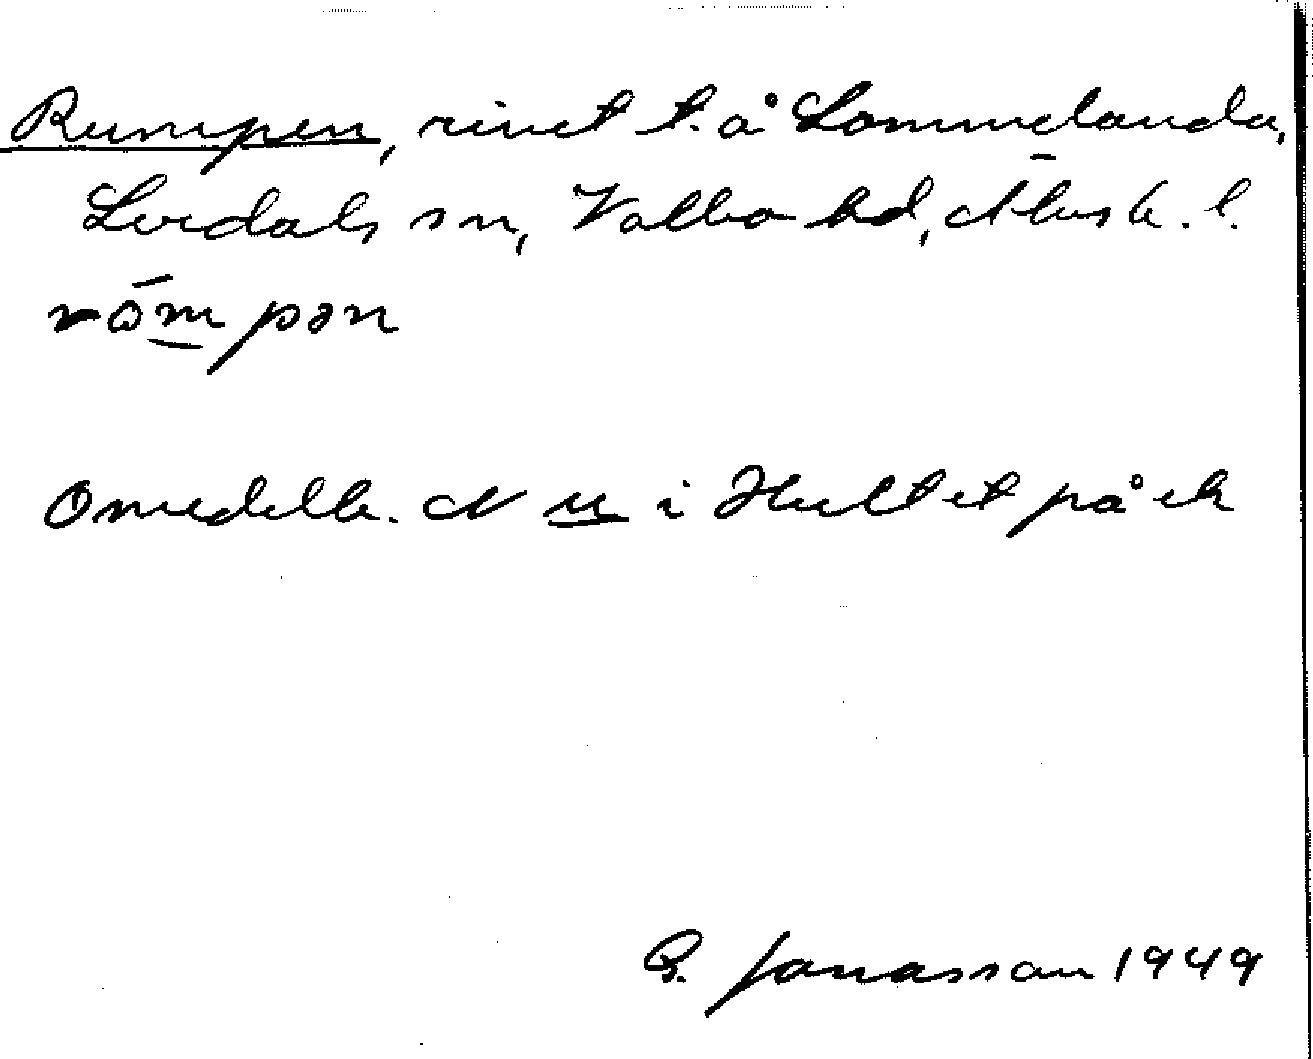 Rumpen, rivet t. å Lommelanda,
Lerdals sn, Valbo hd, Älvsb. l.
römpən
Omedelb. N u i Hultet på ek
G. Jonasson 1949